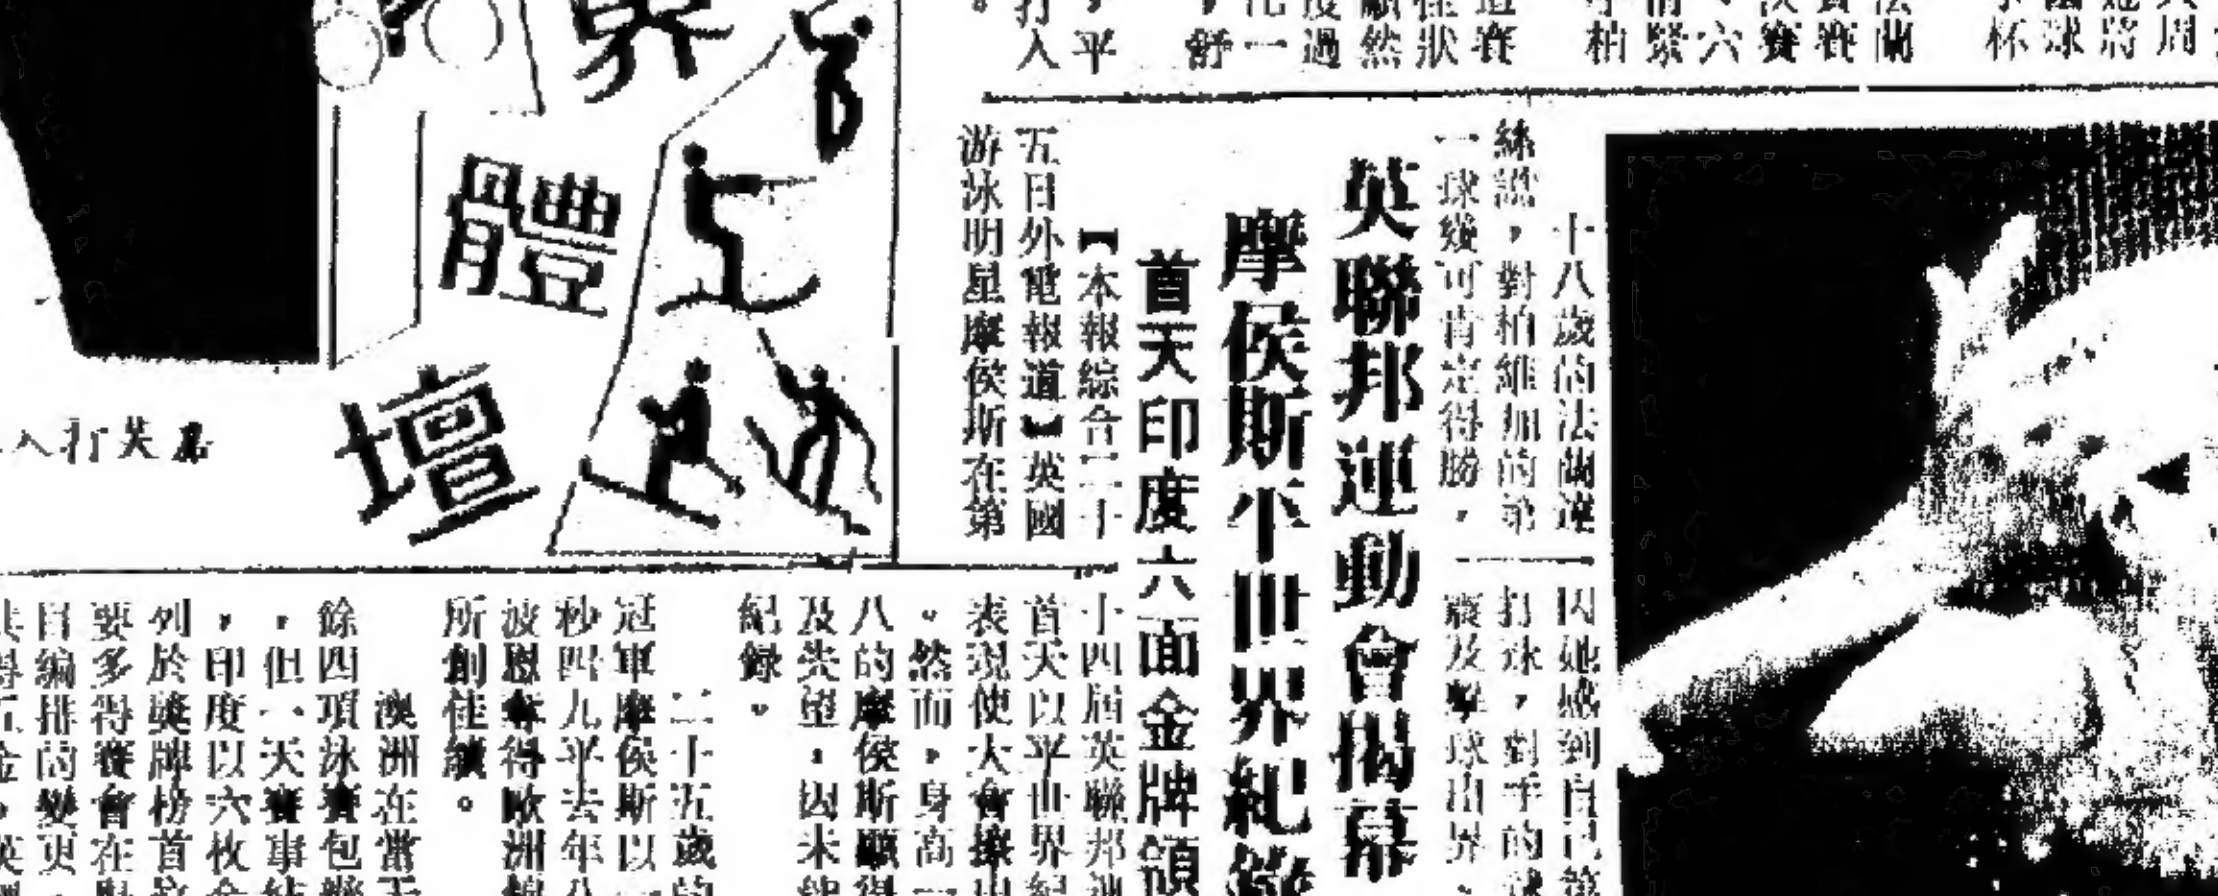 賽
狀
然
過
一
，舒
，平
打入
蘭
賽
賽
六
緊
柏
周
將
球
杯
界
體
壇
十八歲的法蘭
絲說，對柏維加的弟
一球幾可肯定得勝，
因她感到自己
打球，對手的
震及擊球出界，
英聯邦運動會揭幕
摩侯斯平世界紀錄
首天印度六面金牌領
【本報綜合二十
五日外電報道】英國
游泳明星摩侯斯在第
十四屆英聯邦
首天以平世界紀
表現使大會
。然而，身高一
八的摩侯斯顯得
及失望，因未能
紀錄。
二十五歲的
冠軍摩侯斯以一
秒四九平去年八
波恩奪得歐洲錦
所創佳績。
澳洲在當天
餘四項泳賽包辦
，但一天賽事結
，印度以六枚金
列於獎牌榜首
要多得賽會在
目編排的變更，
得五金，英
入打英